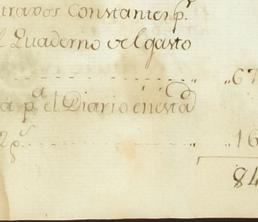 travos Constantes pr.
l Quaderno del gasto
67
a pa. el Diario en esta
2 ps. 16
84